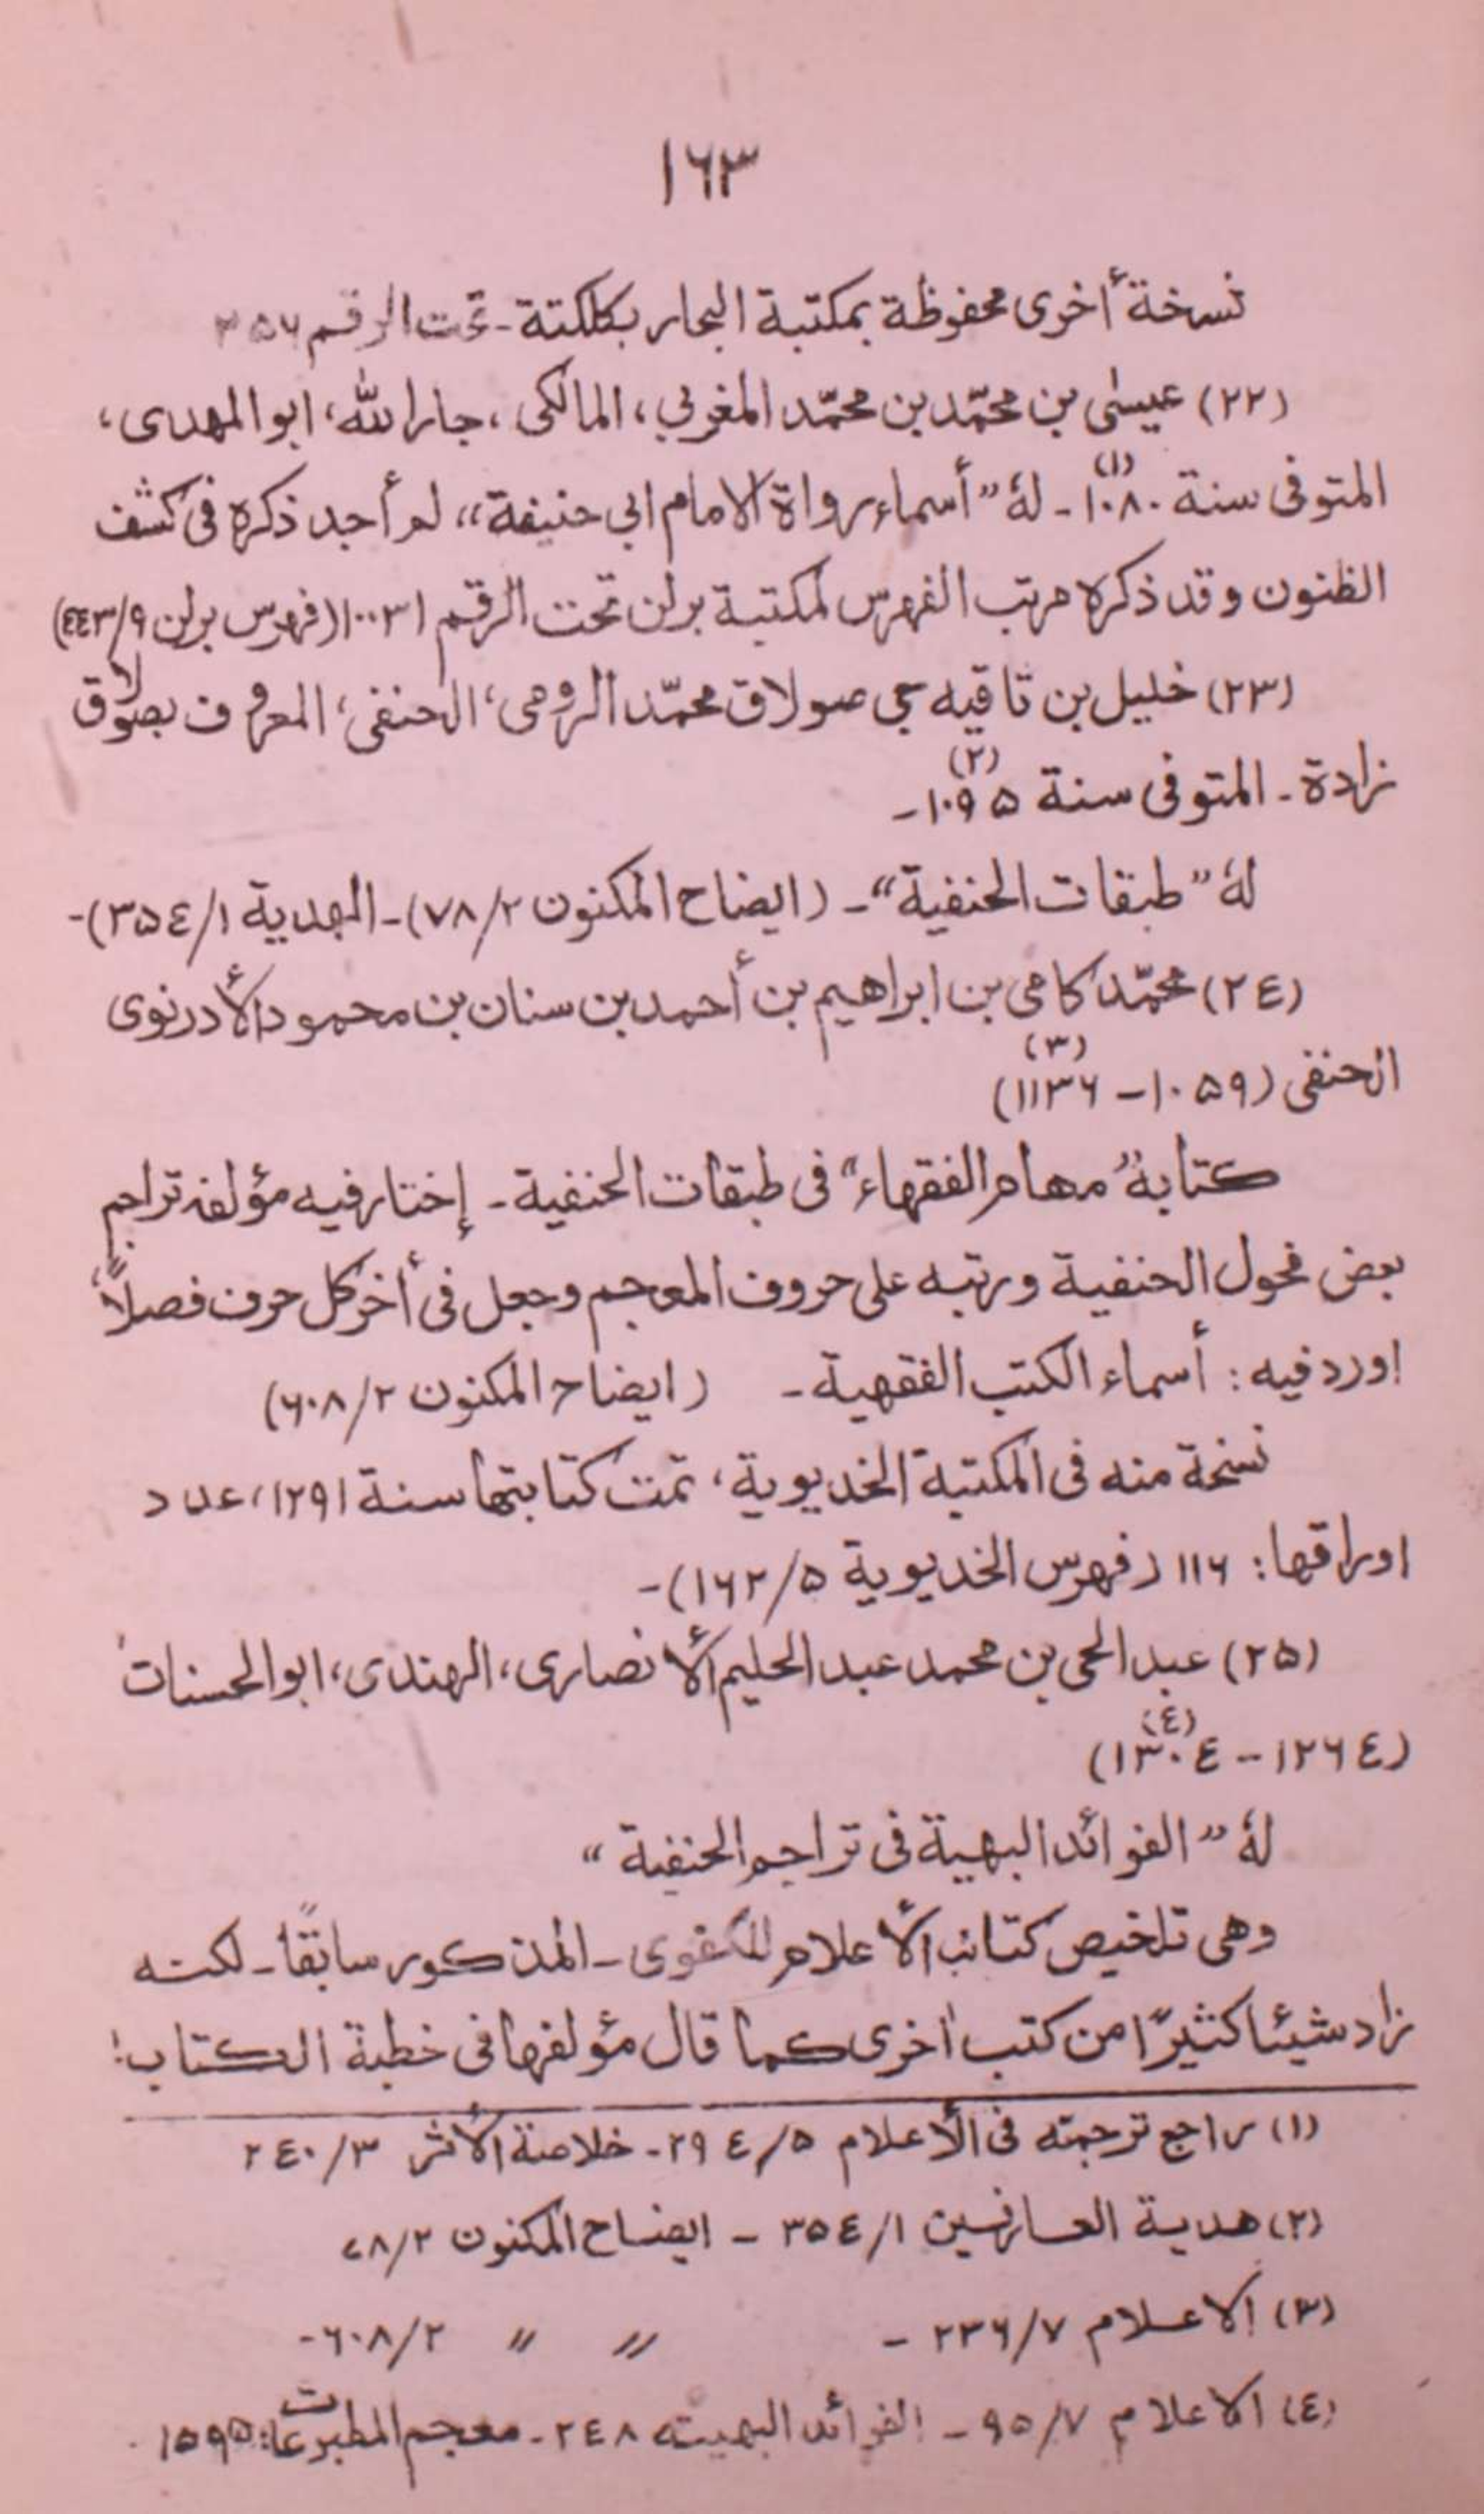 ١٦٣
نسخة أخرى محفوظة بمكتبة البحار بكلكتة - تحت الرقم ٣٥٦
(٢٢) عيسى بن محمّد بن محمّد المغربي، المالكى، جار الله، ابو المهدى،
المتوفى سنة ١٠٨٠ (١) - لهٗ "أسماء رواة الامام ابي حنيفة" لم أجد ذكره فى كشف
الظنون وقد ذكره مرتب الفهرس لمكتبة برلن تحت الرقم ١٠٠٣١ (فهرس برلن ٤٤٣/٩)
(٢٣) خليل بن تاقيه جى صولاق محمّد الرومى، الحنفى، المعروف بصولاق
زادة - المتوفى سنة ١٠٩٥ (٢) -
لهٗ "طبقات الحنفية" - (ايضاح المكنون ٧٨/٢) - الهدية ٣٥٤/١) -
(٢٤) محمّد كامى بن ابراهيم بن أحمد بن سنان بن محمود الأدرنوى
الحنفى (١٠٥٩ - ١١٣٦) (٣)
كتابهٗ "مهام الفقهاء" فى طبقات الحنفية - إختار فيه مؤلفه تراجم
بعض فحول الحنفية ورتبه على حروف المعجم وجعل فى أخر كل حرف فصلاً،
اورد فيه: أسماء الكتب الفقهية - (ايضاح المكنون ٦٠٨/٢)
نسخة منه فى المكتبة الخديوية، تمت كتابتها سنة ١٢٩١، عدد
اوراقها: ١١٦ (فهرس الخديوية ١٦٢/٥) -
(٢٥) عبد الحى بن محمد عبد الحليم الأنصارى، الهندى، ابو الحسنات
(١٢٦٤ - ١٣٠٤) (٤)
لهٗ "الفوائد البهية فى تراجم الحنفية"
وهى تلخيص كتائب الأعلام للكفوى - المذكور سابقًا - لكنه
زاد شيئا كثيرًا من كتب اخرى كما قال مؤلفها فى خطبة الكتاب:
(١) راجع ترجمته فى الأعلام ٢٩٤/٥ - خلاصة الأثر ٢٤٠/٣
(٢) هدية العارفين ٣٥٤/١ - ايضاح المكنون ٧٨/٢
(٣) الاعلام ٢٣٦/٧ - 〃 〃 ٦٠٨/٢ -
(٤) الاعلام ٩٥/٧ - الفوائد البهيته ٢٤٨ - معجم المطبوعات: ١٥٩٥